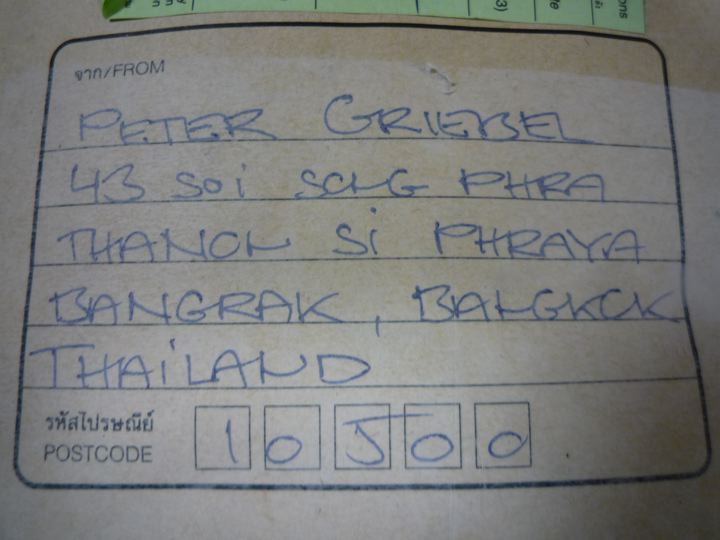 จาก/FROM
PETER GRIEBEL
43 SOi SONG PHRA
THANON Si PHRAYA
BANGRAK, BANGKOK
THAiLAND
รหัสไปรษณีย์
POSTCODE 10500